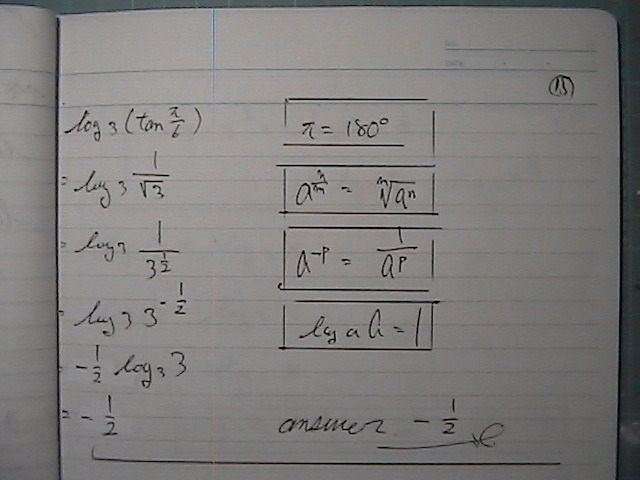 NO.
DATE
(15)
log₃(tan π/6)
= log₃ 1/√3
= log₃ 1/3^(1/2)
= log₃ 3^(-1/2)
= -1/2 log₃ 3
= -1/2
π = 180°
a^(n/m) = ᵐ√aⁿ
a^(-p) = 1/a^p
log a a = 1
answer -1/2